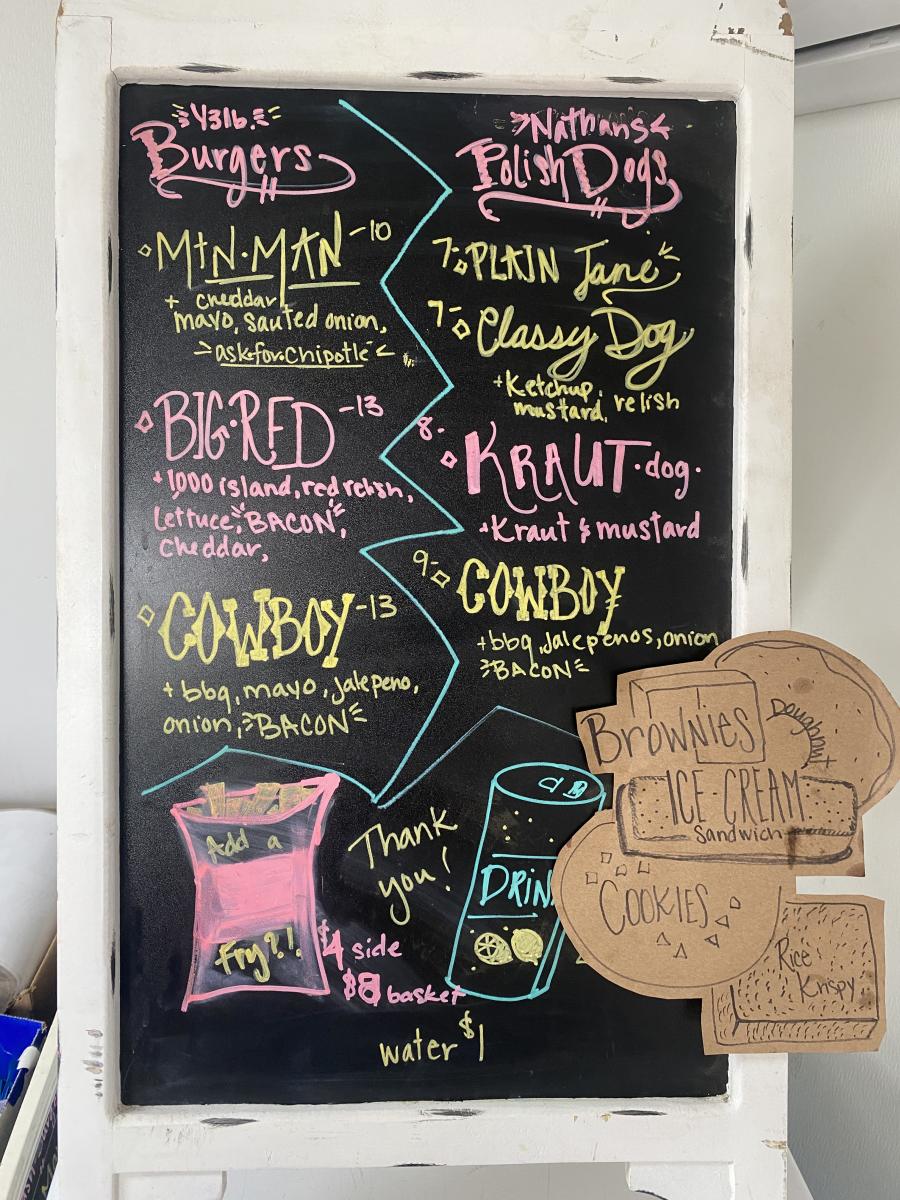 Y3lb.
Burgers
MtN·MAN -10
+ cheddar
mayo, sauted onion,
ask for Chipotle
BIG·RED -13
+1000 island, red relish,
lettuce, BACON,
cheddar,
COWBOY -13
+ bbq, mayo, jalepeno,
onion, BACON
Nathans
Polish Dogs
7- PLAIN Jane
7- Classy Dog
+Ketchup,
mustard, relish
8- KRAUT·dog·
+Kraut & mustard
9- COWBOY
+bbq, Jalepenos, onion
BACON
Add a
Fry?!
$4 side
$8 basket
Thank
you!
DRIN
water $1
Brownies
Doughnut
ICE CREAM
Sandwich
COOKIES
Rice
Krispy